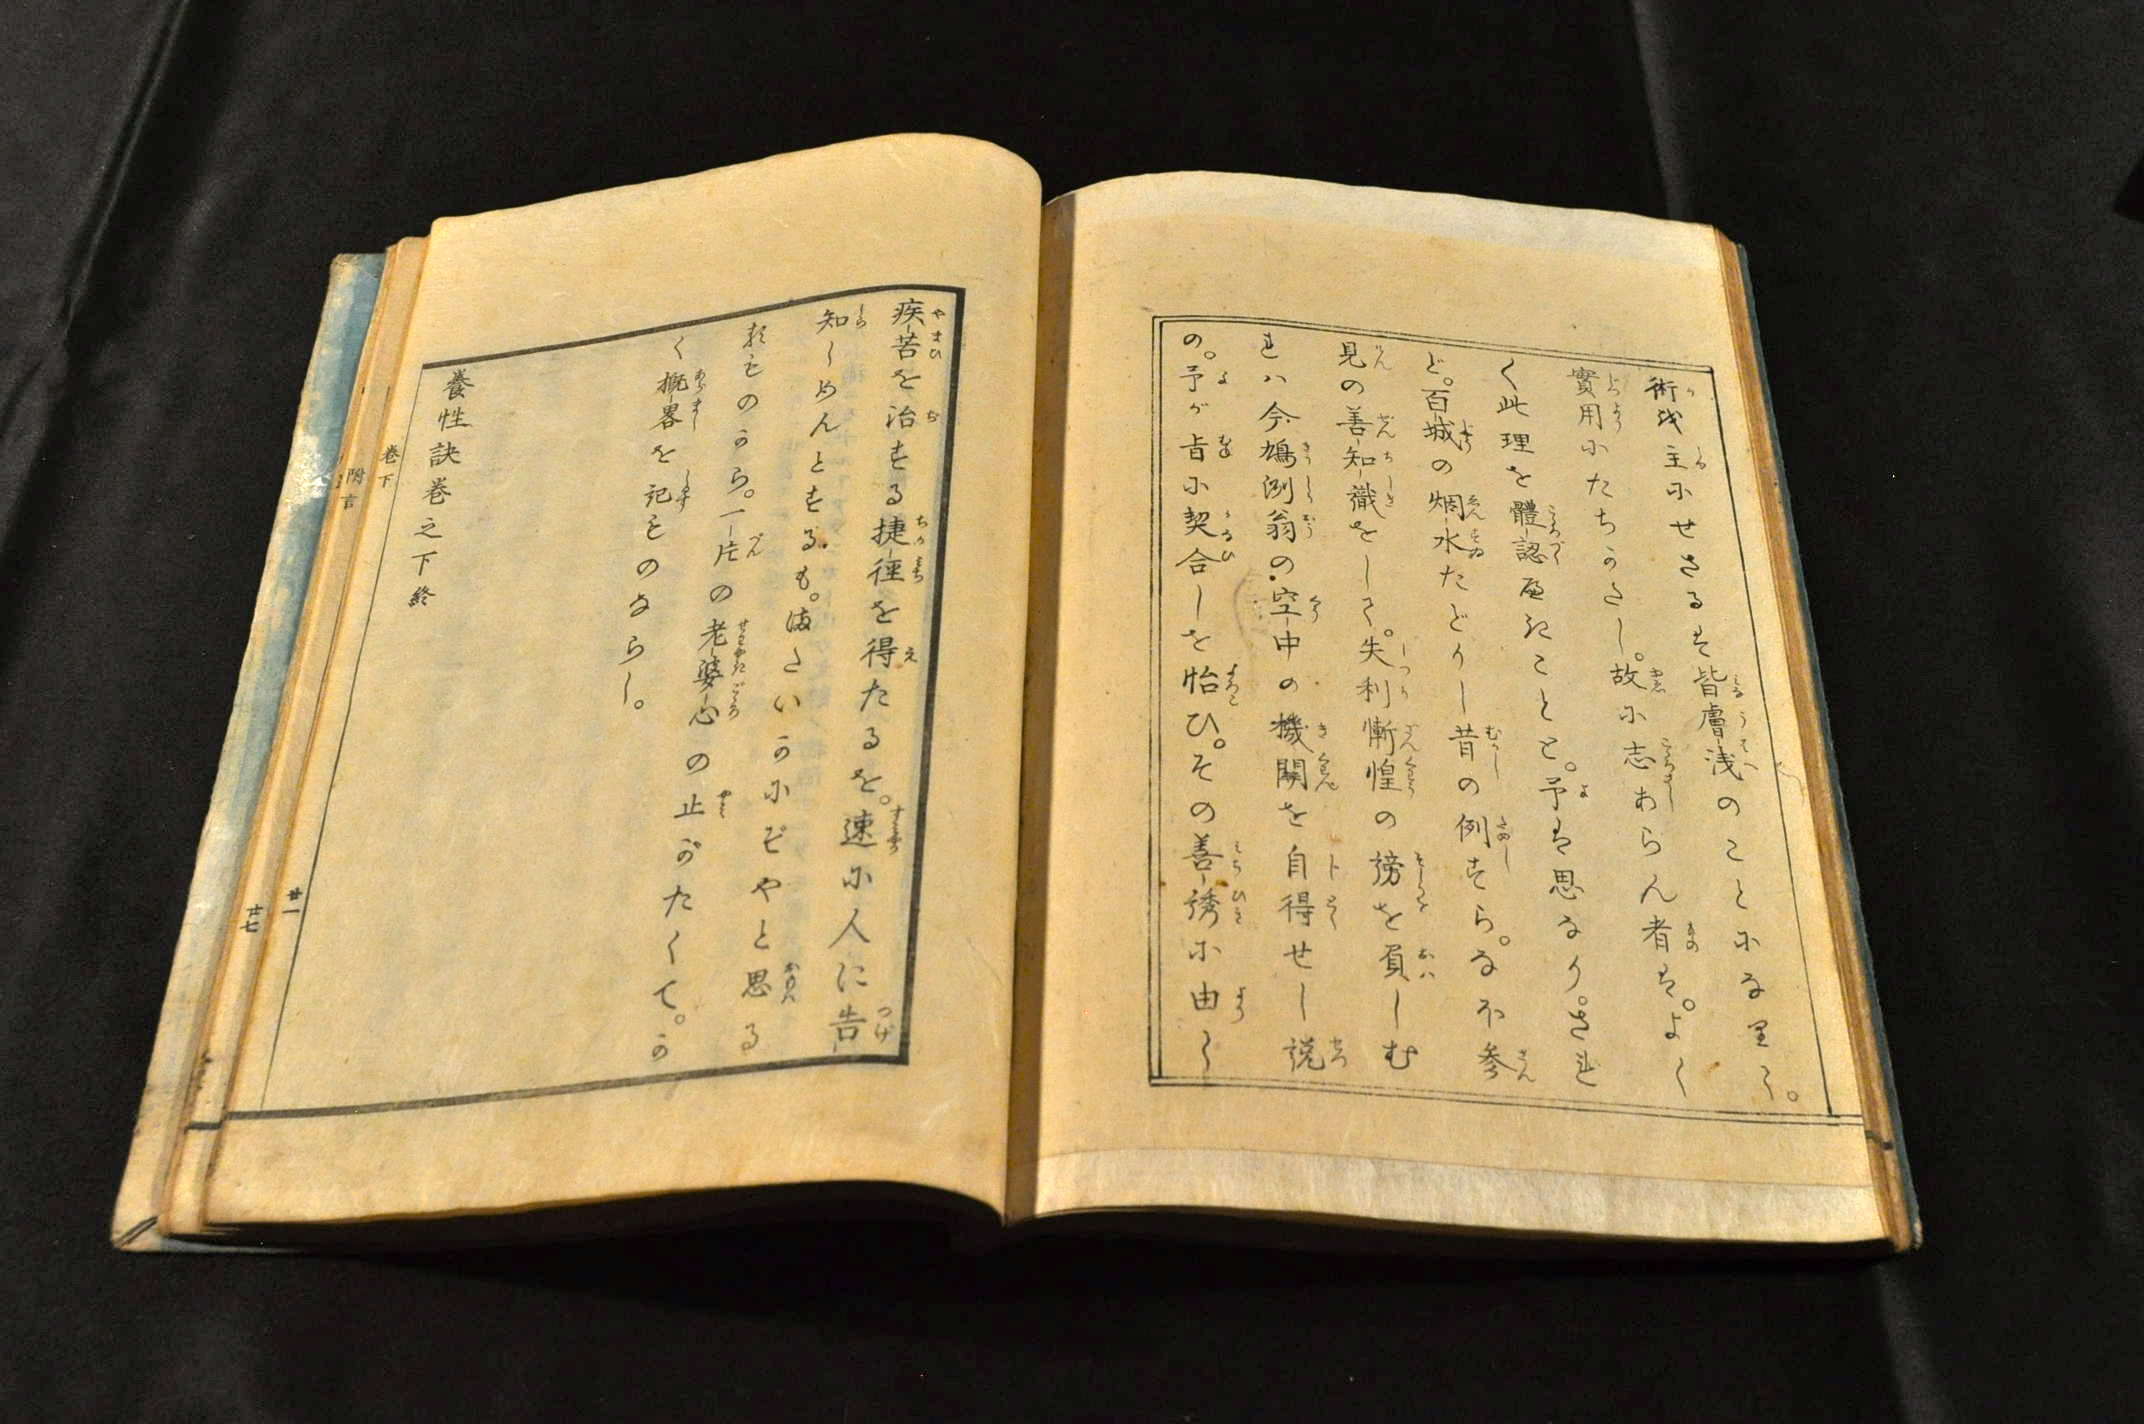 術我主ふせざるは皆膚浅のことになりて。
實用ふたちがたし。故ふ志あらん者は。よく
く此理を體認
こと
と。予は思なり。され
ど。百城の烟水たどりし昔の例すら。なほ参
見の善知識をして。失利慚惶の謗を負しむ
れハ今鳩洌翁の空中の機關を自得せし説
の。予が旨ふ契合しを怡ひ。その善誘ふ由て
疾苦を治する捷徑を得たるを。速ふ人に告
知しめんとするも。
いかふぞやと思る
ものから。一片の老婆心の止がたくて。か
く概畧を記ものならし。
養性訣巻之下終
巻下
附言
廿一
廿七